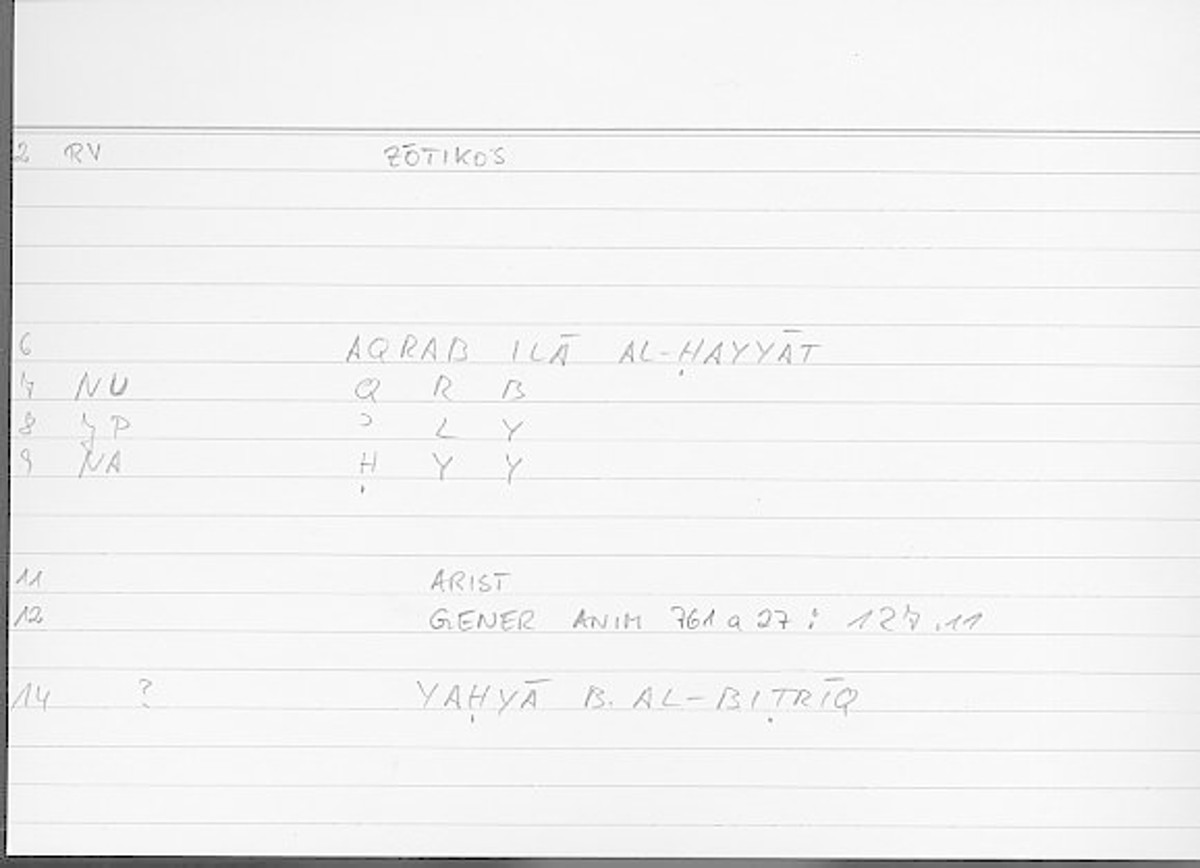 2 RV ZŌTIKOS
6 AQRAB ILĀ AL-ḤAYYĀT
7 NU Q R B
8 JP ʾ L Y
9 NA Ḥ Y Y
11 ARIST
12 GENER ANIM 761 a 27 : 127.11
14 ? YAḤYĀ B. AL-BIṬRĪQ